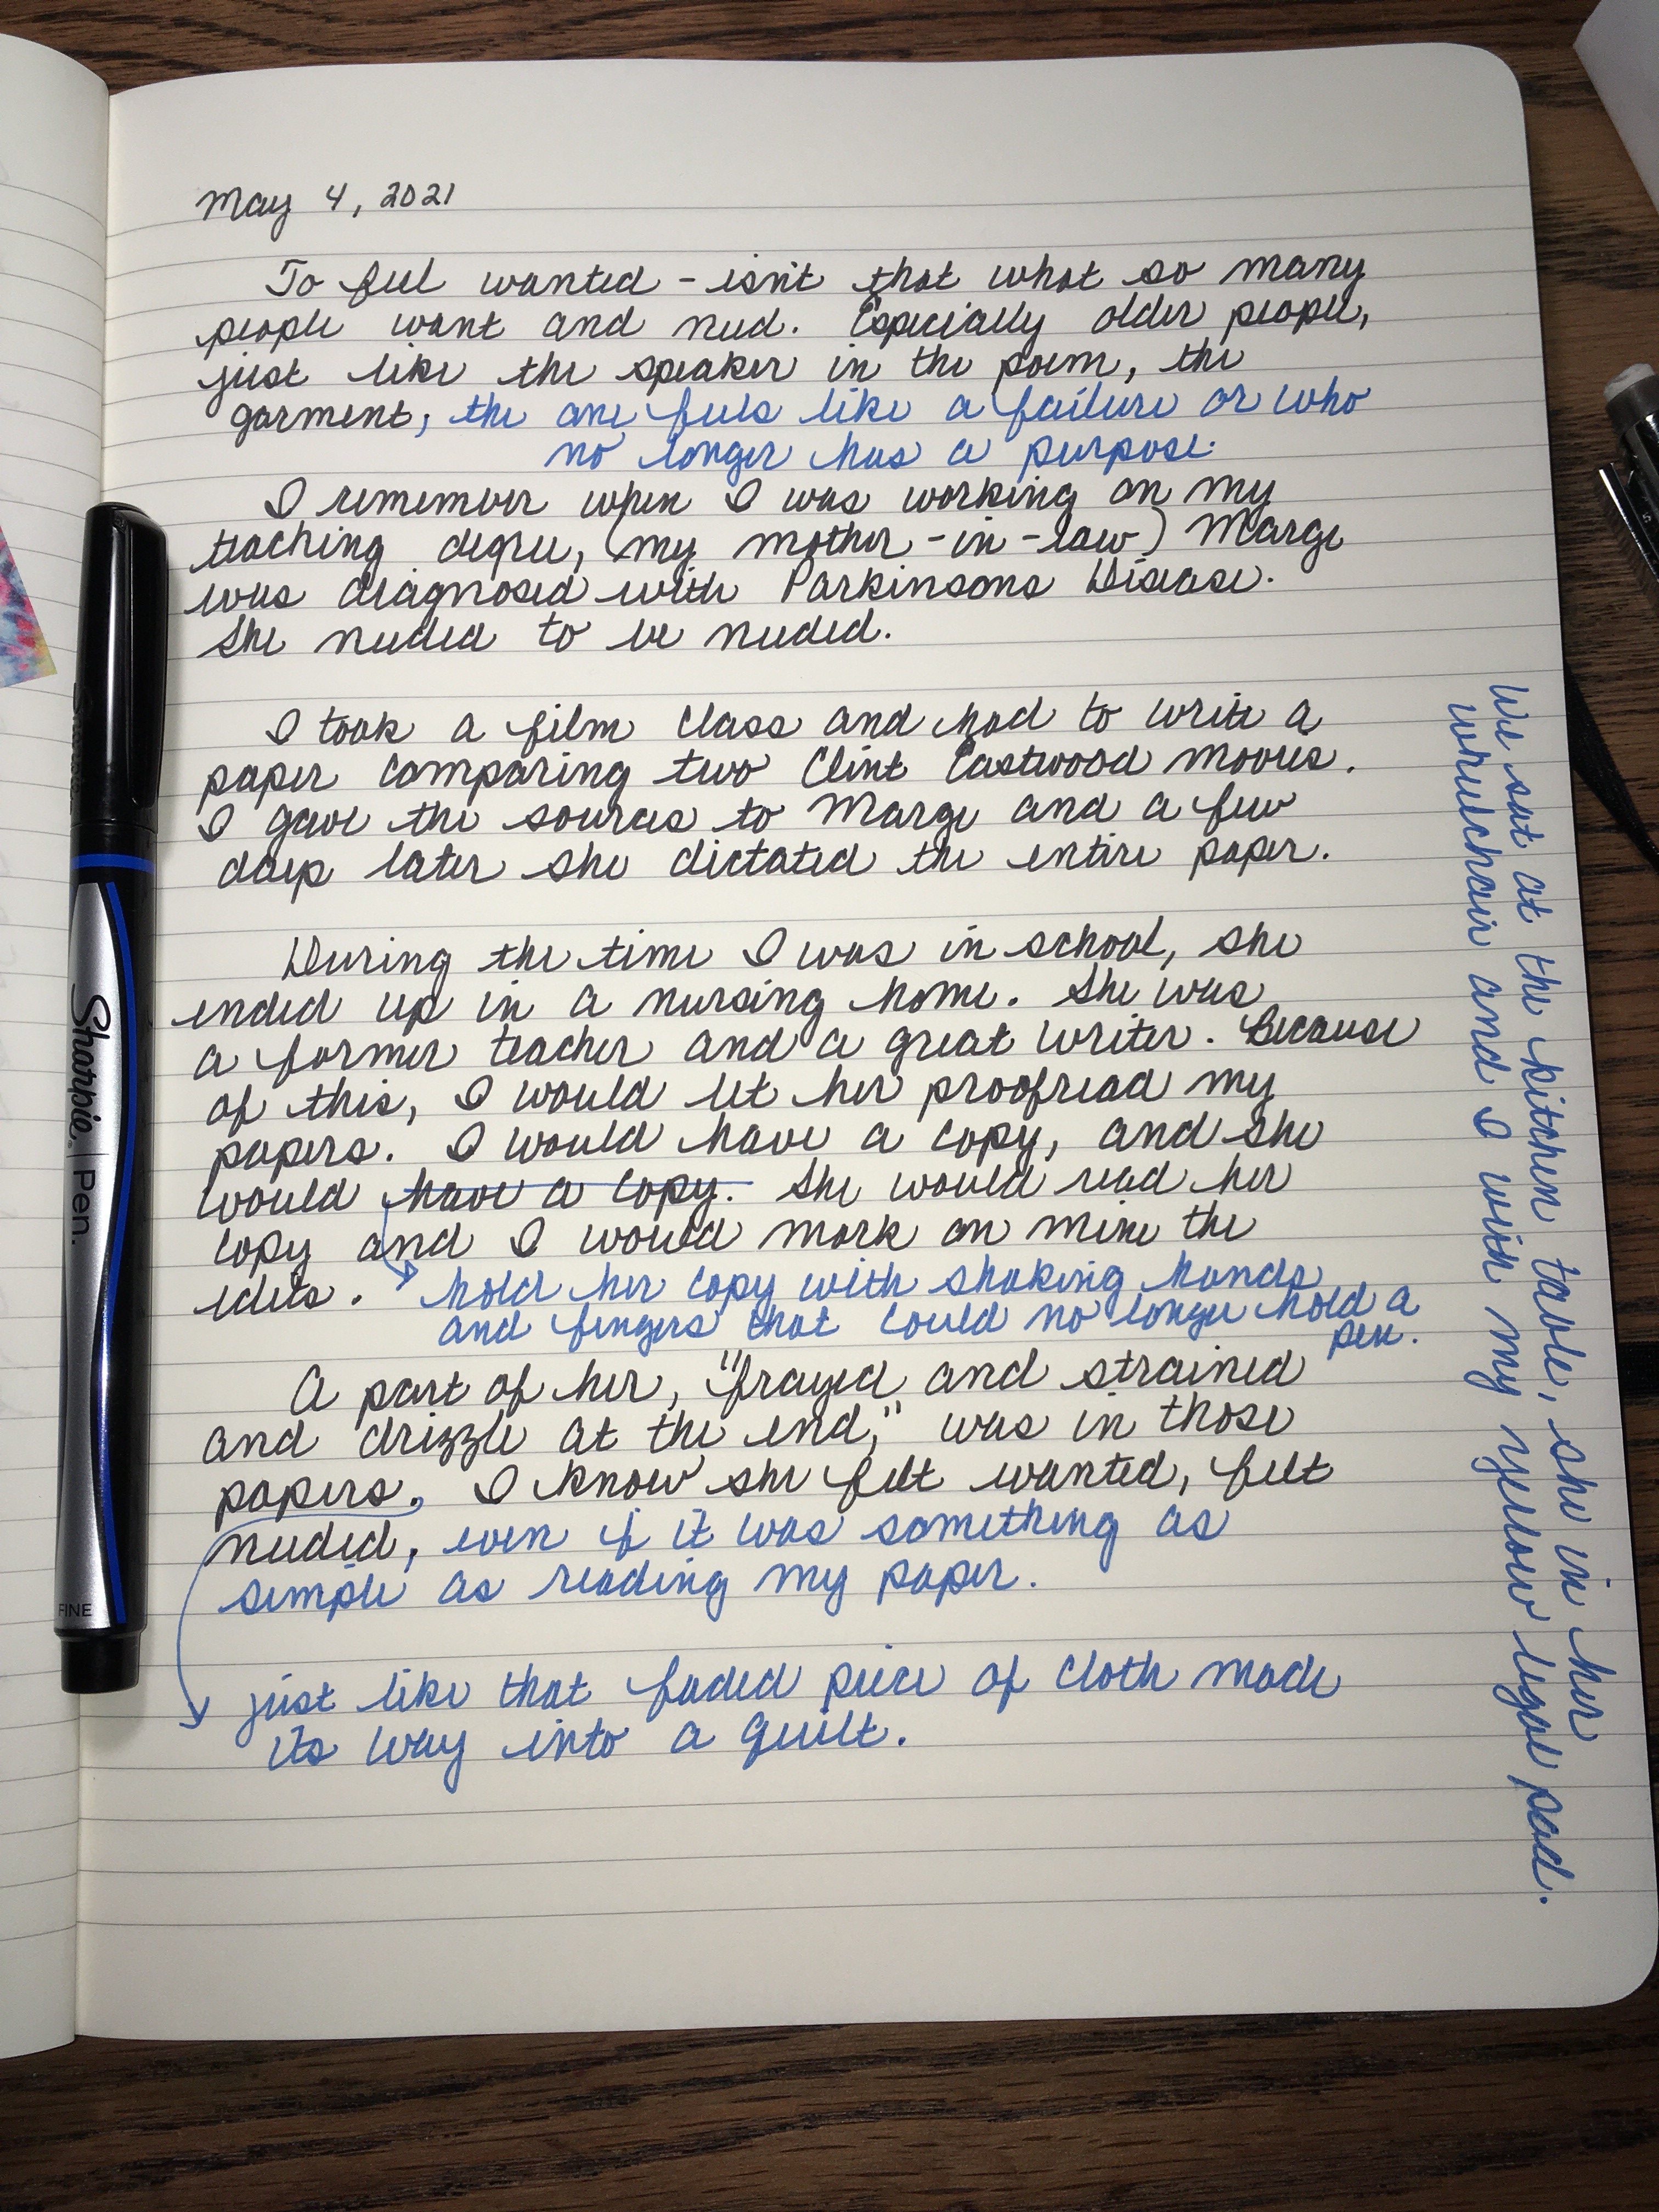 May 4, 2021
To feel wanted - isn't that what so many
people want and need. Especially older people,
just like the speaker in the poem, the
garment, the one feels like a failure or who
no longer has a purpose.
I remember when I was working on my
teaching degree, (my mother-in-law) Marge
was diagnosed with Parkinsons Disease.
She needed to be needed.
I took a film class and had to write a
paper comparing two Clint Eastwood movies.
I gave the sources to Marge and a few
days later she dictated the entire paper.
During the time I was in school, she
ended up in a nursing home. She was
a former teacher and a great writer. Because
of this, I would let her proofread my
papers. I would have a copy, and she
would have a copy. She would read her
copy and I would mark on mine the
edits.
hold her copy with shaking hands
and fingers that could no longer hold a
pen.
A part of her, "frayed and strained
and drizzle at the end," was in those
papers. I know she felt wanted, felt
needed, even if it was something as
simple as reading my paper.
just like that faded piece of cloth made
its way into a quilt.
We sat at the kitchen table, she in her
wheelchair and I with my yellow legal pad.
Sharpie. | Pen.
FINE